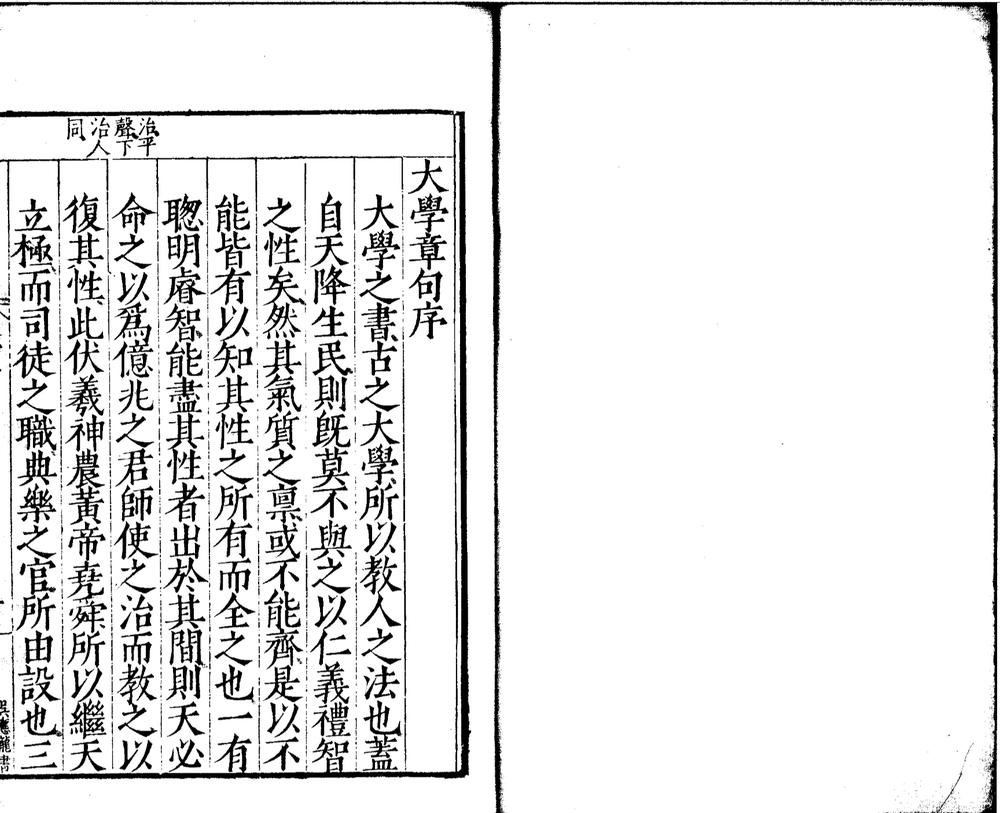 治平
聲下
治人
同
大學章句序
大學之書古之大學所以教人之法也蓋
自天降生民則旣莫不與之以仁義禮智
之性矣然其氣質之稟或不能齊是以不
能皆有以知其性之所有而全之也一有
聦明睿智能盡其性者出於其間則天必
命之以爲億兆之君師使之治而教之以
復其性此伏羲神農黃帝堯舜所以繼天
立極而司徒之職典樂之官所由設也三